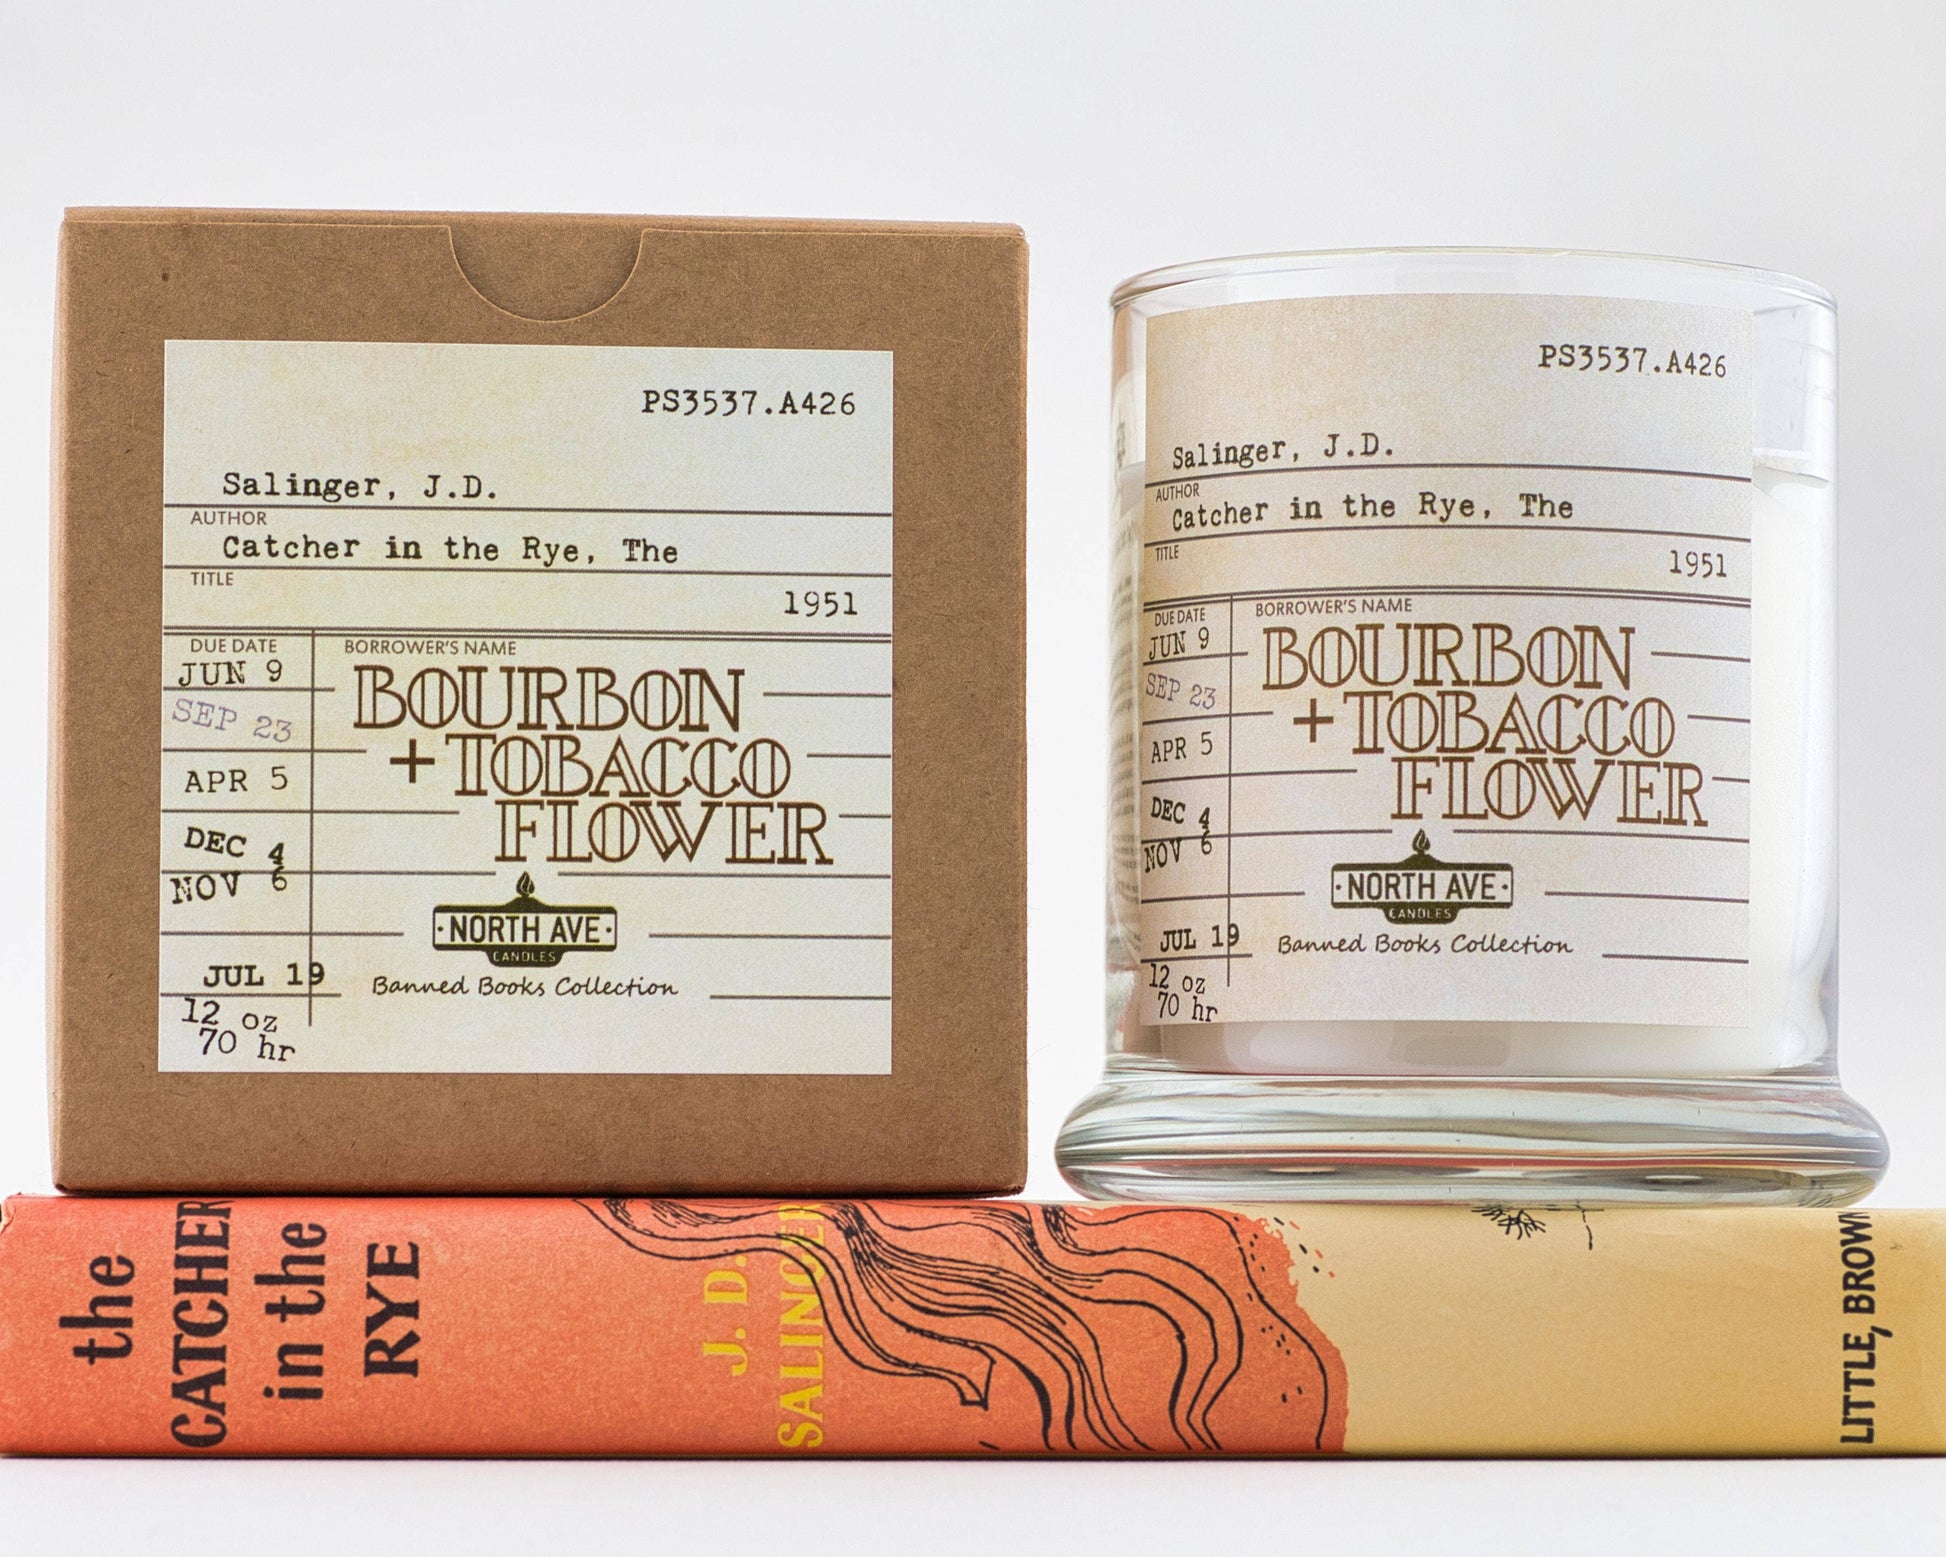 PS3537.A426
Salinger, J.D.
AUTHOR
Catcher in the Rye, The
TITLE
1951
DUE DATE
BORROWER'S NAME
JUN 9
SEP 23
APR 5
DEC 4
NOV 6
JUL 19
12 oz
70 hr
BOURBON
+TOBACCO
FLOWER
·NORTH AVE·
CANDLES
Banned Books Collection
PS3537.A426
Salinger, J.D.
AUTHOR
Catcher in the Rye, The
TITLE
1951
DUE DATE
BORROWER'S NAME
JUN 9
SEP 23
APR 5
DEC 4
NOV 6
JUL 19
12 oz
70 hr
BOURBON
+TOBACCO
FLOWER
·NORTH AVE·
CANDLES
Banned Books Collection
the
CATCHER
in the
RYE
J. D.
SALINGER
LITTLE, BROWN